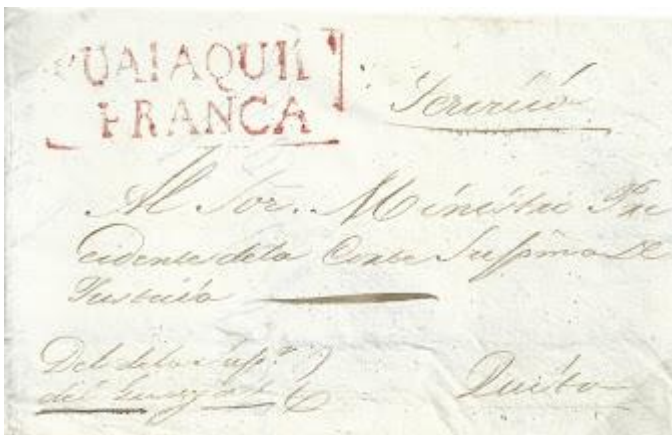 UAIAQUIL
FRANCA
Servicio
Al Sor. Ministro Pre
cidente dela Corte Suprma De
Justicia
Del dela
Quito